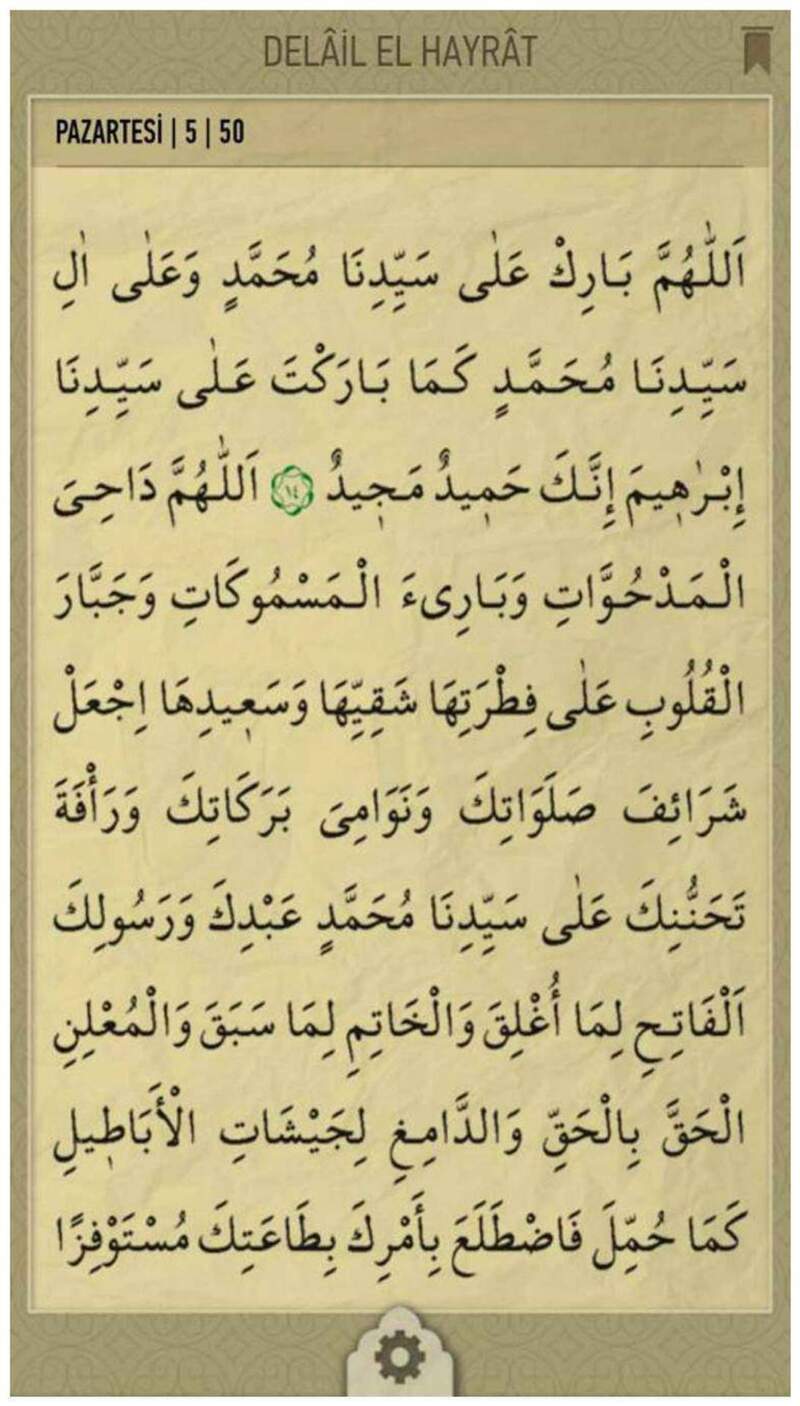 DELÂİL EL HAYRÂT
PAZARTESİ | 5 | 50
اَللّٰهُمَّ بَارِكْ عَلٰى سَيِّدِنَا مُحَمَّدٍ وَعَلٰى اٰلِ
سَيِّدِنَا مُحَمَّدٍ كَمَا بَارَكْتَ عَلٰى سَيِّدِنَا
إِبْرٰهٖيمَ إِنَّكَ حَمٖيدٌ مَجٖيدٌ ١٤ اَللّٰهُمَّ دَاحِىَ
الْمَدْحُوَّاتِ وَبَارِىءَ الْمَسْمُوكَاتِ وَجَبَّارَ
الْقُلُوبِ عَلٰى فِطْرَتِهَا شَقِيِّهَا وَسَعٖيدِهَا اِجْعَلْ
شَرَائِفَ صَلَوَاتِكَ وَنَوَامِىَ بَرَكَاتِكَ وَرَأْفَةَ
تَحَنُّنِكَ عَلٰى سَيِّدِنَا مُحَمَّدٍ عَبْدِكَ وَرَسُولِكَ
اَلْفَاتِحِ لِمَا أُغْلِقَ وَالْخَاتِمِ لِمَا سَبَقَ وَالْمُعْلِنِ
الْحَقَّ بِالْحَقِّ وَالدَّامِغِ لِجَيْشَاتِ الْأَبَاطٖيلِ
كَمَا حُمِّلَ فَاضْطَلَعَ بِأَمْرِكَ بِطَاعَتِكَ مُسْتَوْفِزًا